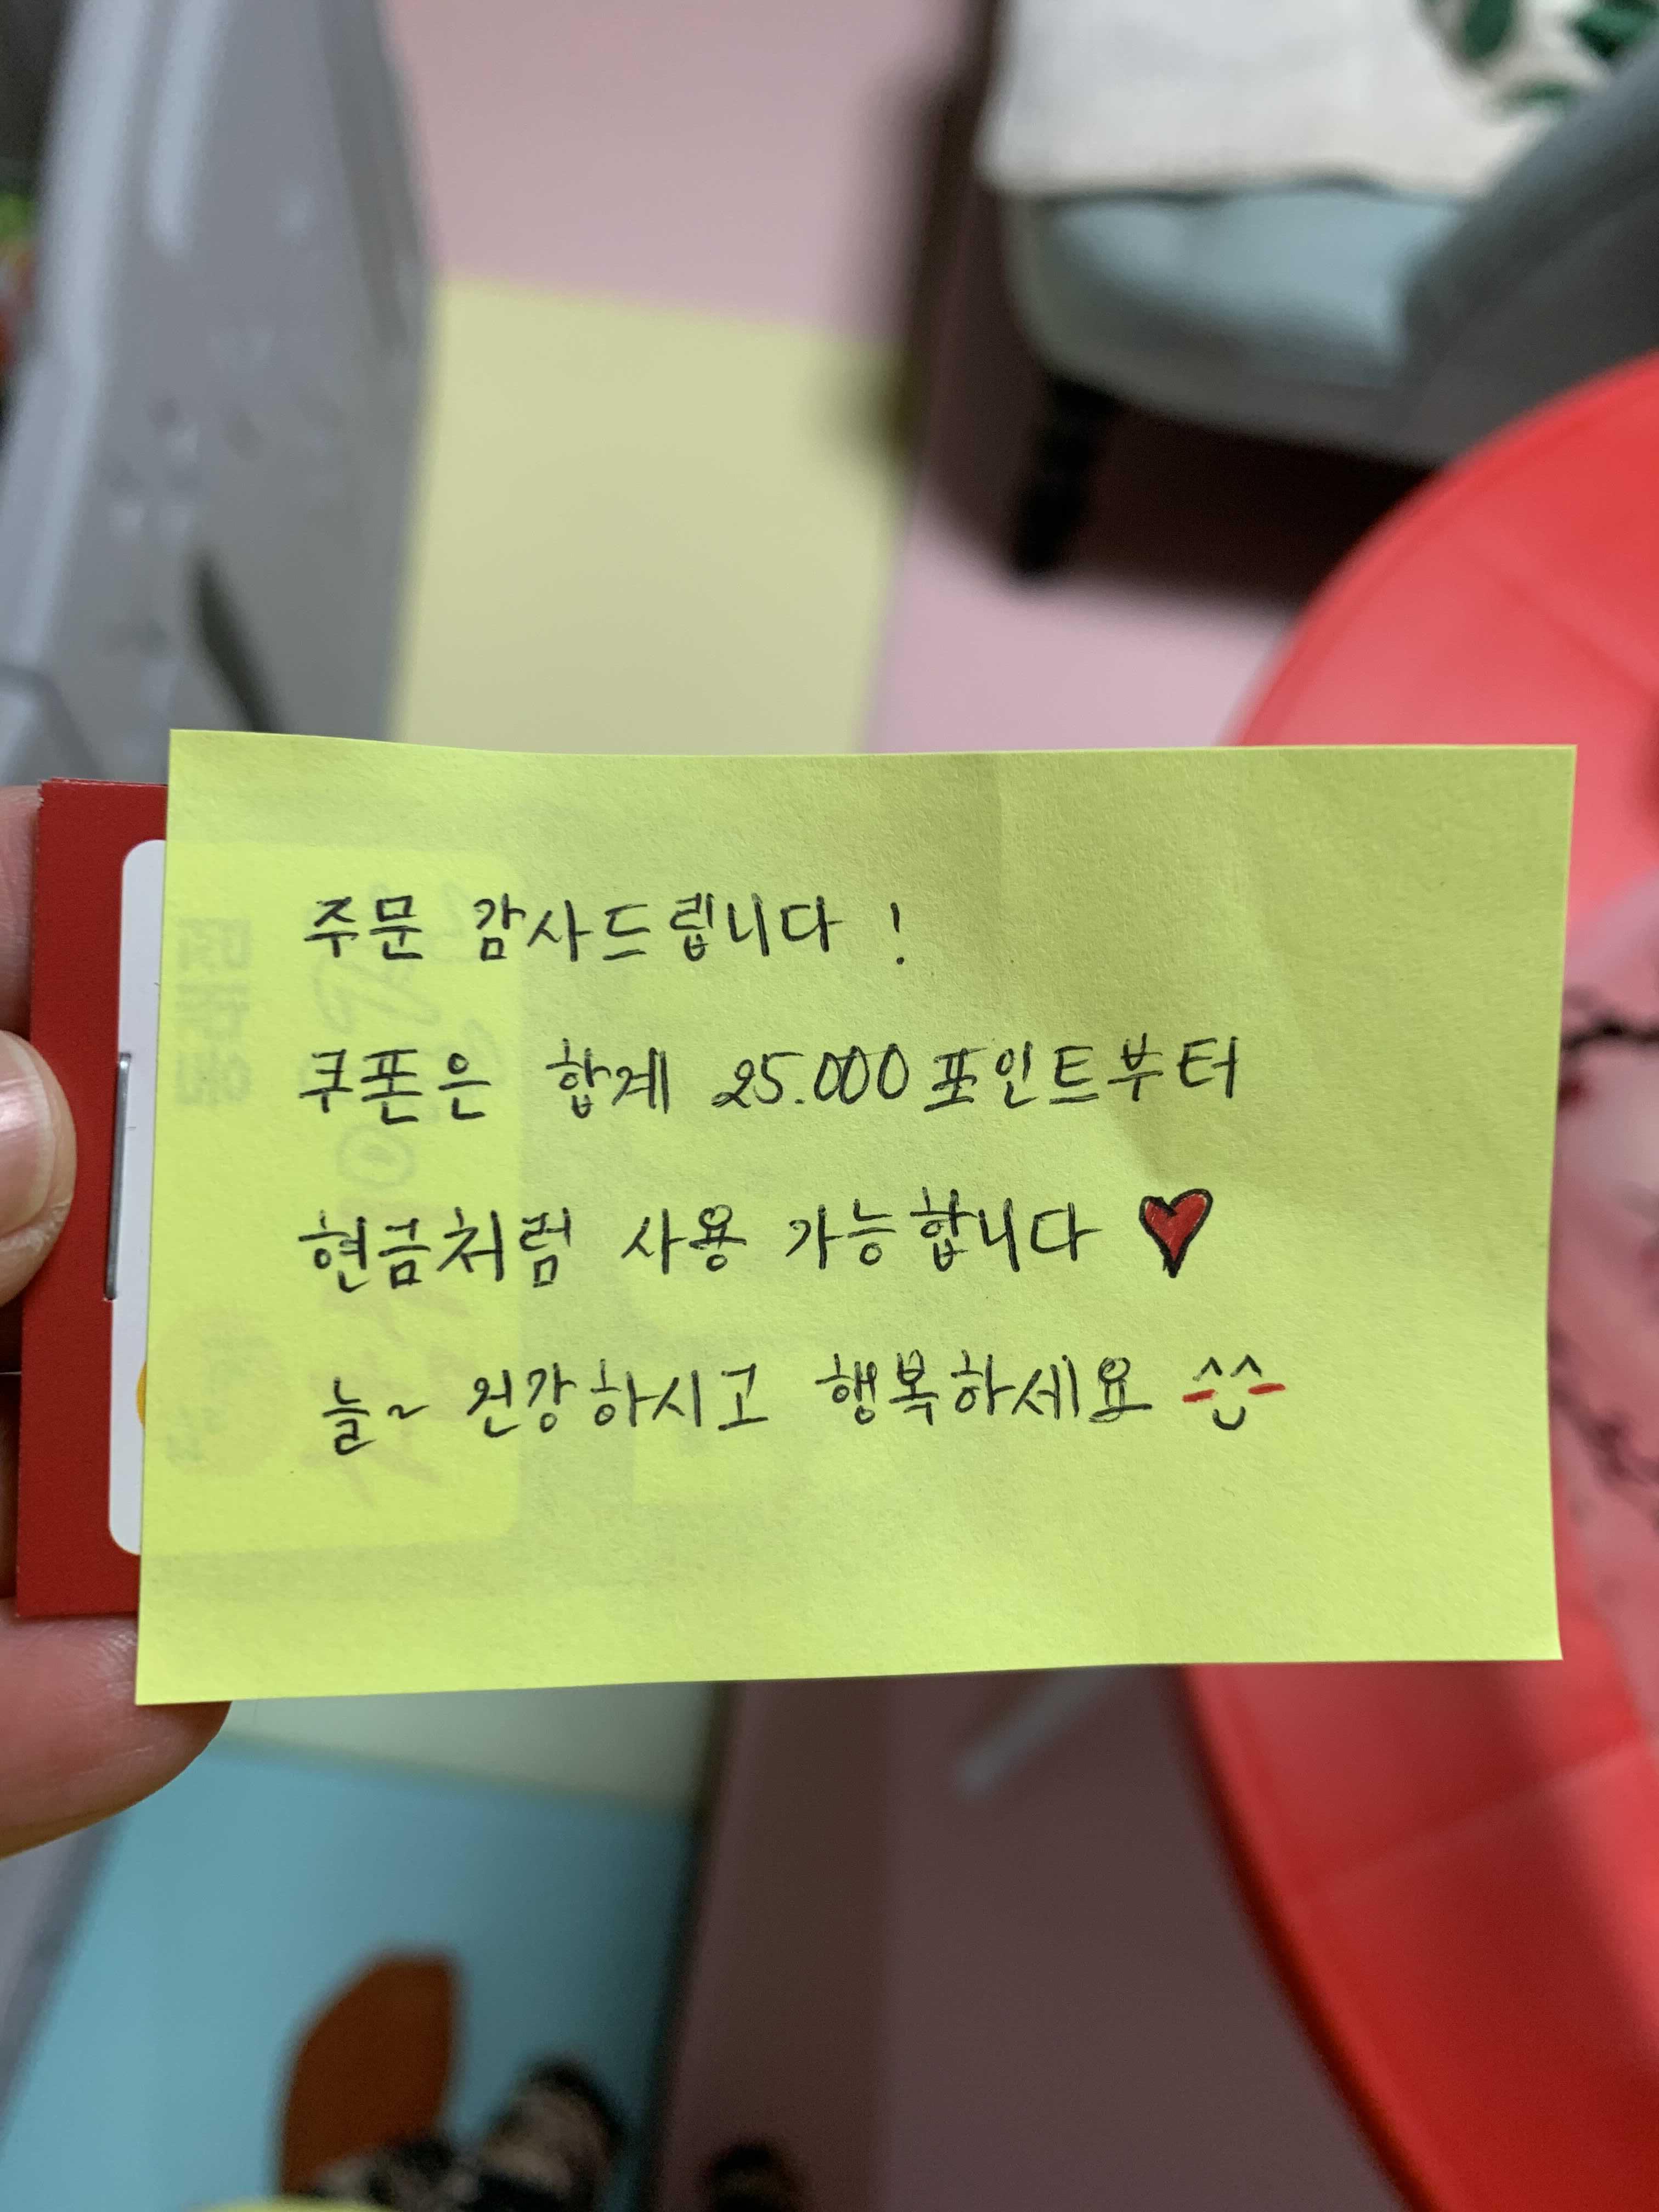 주문 감사드립니다 !
쿠폰은 합계 25.000포인트부터
현금처럼 사용 가능합니다 ♥
늘~ 건강하시고 행복하세요 ^^